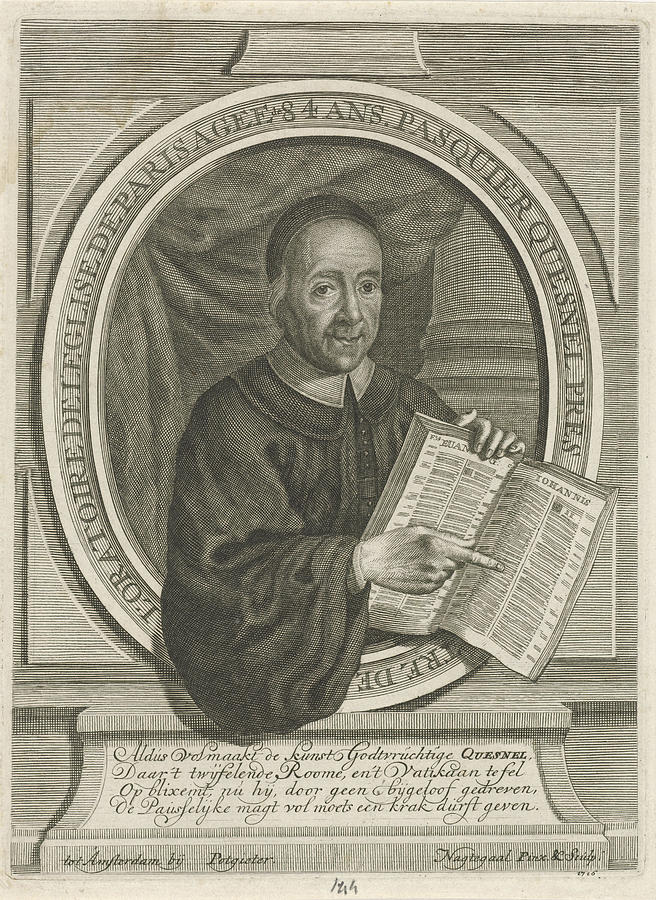 PASQUIER QUESNEL PRES
TRE DE
L'ORATOIRE DE L'EGLISE DE PARIS AGEE 84 ANS.
EUANG
IOHANNIS
Aldús volmaakt de kúnst Godtvrúchtige QUESNEL,
Daar't twyfelende Roome, en't Vatikaan te fel
Op blixemt, nú hij, door geen bygeloof gedreven,
de Paússelyke magt vol moets een krak dúrft geven.
tot Amsterdam bij Potgieter.
Nagtegaal Pinx. & Sculp.
1716